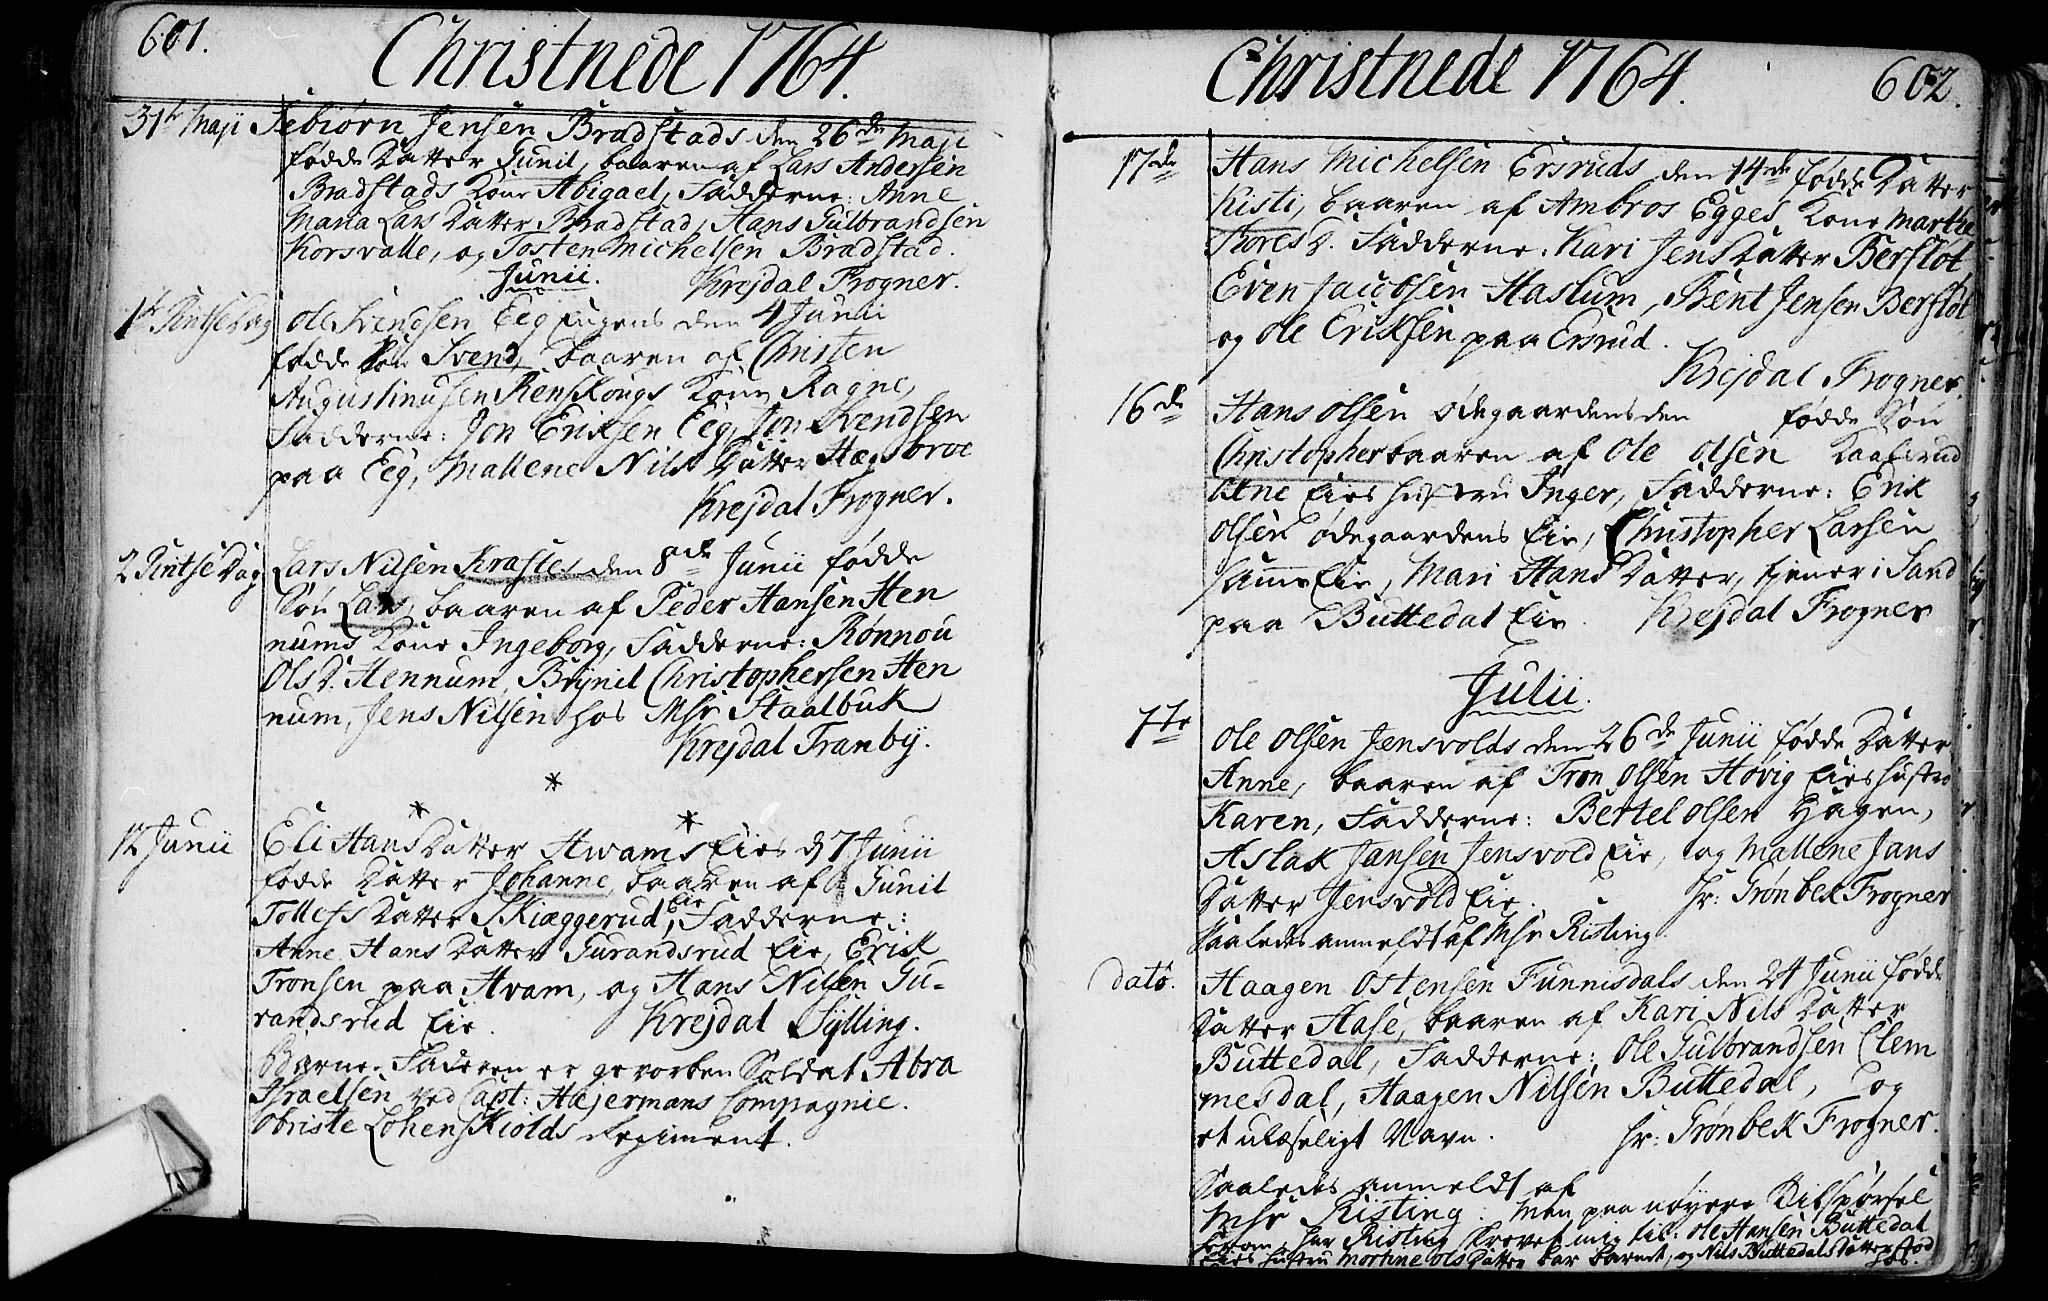 601.
Christnede 1764.
31te Maji Febiørn Jensen Bradstads den 26de Maji
fødde Datter Gunil, baaren af Lars Andersen
Bradstads Kone Abigael, Fadderne: Anne
Maria Lars Datter Bradstad, Hans Gulbrandsen
Korsvalle, og Tosten Michelsen Bradstad.
Junii. Krejdal Frogner.
1te Pintsedag Ole Svendsen Eeg Eugens den 4 Junii
fødde Søn Svend, baaren af Christen
Augustinusen Renskougs Kone Ragne,
Fadderne: Jon Eriksen Eeg, Jon Svendsen
paa Eeg, Mallene Nils Datter Hægsbroe
Krejdal Frogner.
2 PintseDag Lars Nilsen Krastes den 8de Junii fødde
Søn Lars, baaren af Peder Hansen Hen
nums Kone Ingeborg, Fadderne: Rønnou
Ols D. Hennum, Brynil Christophersen Hen
num, Jens Nilsen hos Msr Staalbuk
Krejdal Tranby.
12 Junii Eli Hans Datter Hwams Eies d 7 Junii
fødde Datter Johanne, baaren af Gunil
Tollefs Datter Skiæggerud Eie, Fadderne:
Anne Hans Datter Gurandsrud Eie, Erik
Tronsen paa Hvam, og Hans Nilsen Gu-
randsrud Eie. Krejdal Sylling.
Barne-Faderen er gevorben Soldat Abra
Israelsen ved Capt: Hejermans Compagnie.
Obriste Lohenskiolds Regiment.
Christnede 1764. 602.
17de Hans Michelsen Ersruds den 14de fødde Datter
Kisti, baaren af Ambros Egges Kone Marthe
Tores D. Fadderne: Kari Jens Datter Berfløt
Even Jacobsen Haslum, Bent Jensen Berfløt,
og Ole Eriksen paa Ersrud.
Krejdal Frogner.
16de Hans Olsen Ødegaardens den fødde Søn
Christopher baaren af Ole Olsen Kaalsrud
Eies hustru Inger, Fadderne: Erik
Olsen Ødegaardens Eie, Christopher Larsen
samme Eie, Mari Hans Datter, tjener i Sand
paa Buttedal Eie. Krejdal Frogner
Julii.
1te Ole Olsen Jensvolds den 26de Junii fødde Datter
Anne, baaren af Tron Olsen Høvig Eies Hustro
Karen, Fadderne: Bertel Olsen Hagen,
Aslak Jansen Jensvold Eie, og Mallene Jans
Datter Jensvold Eie. Hr: Grønbek Frogner
Saaledes anmeldt af Msr Risting.
dato. Haagen Ostensen Funnisdals den 24 Junii fødde
Datter Aase, baaren af Kari Nils Datter
Buttedal, Fadderne: Ole Gulbrandsen Clem
mesdal, Haagen Nilsen Buttedal, og
et ulæseligt Navn. Hr: Grønbek Frogner.
Saaledes anmeldt af
Msr Risting. Men paa nøyere Bitspørsel
herom, har Risting skrevet mig til: Ole Hansen Buttedal
Eies hustru Mortine Ols Datter bar barnet, og Nils Buttedals Datter stod
hos.